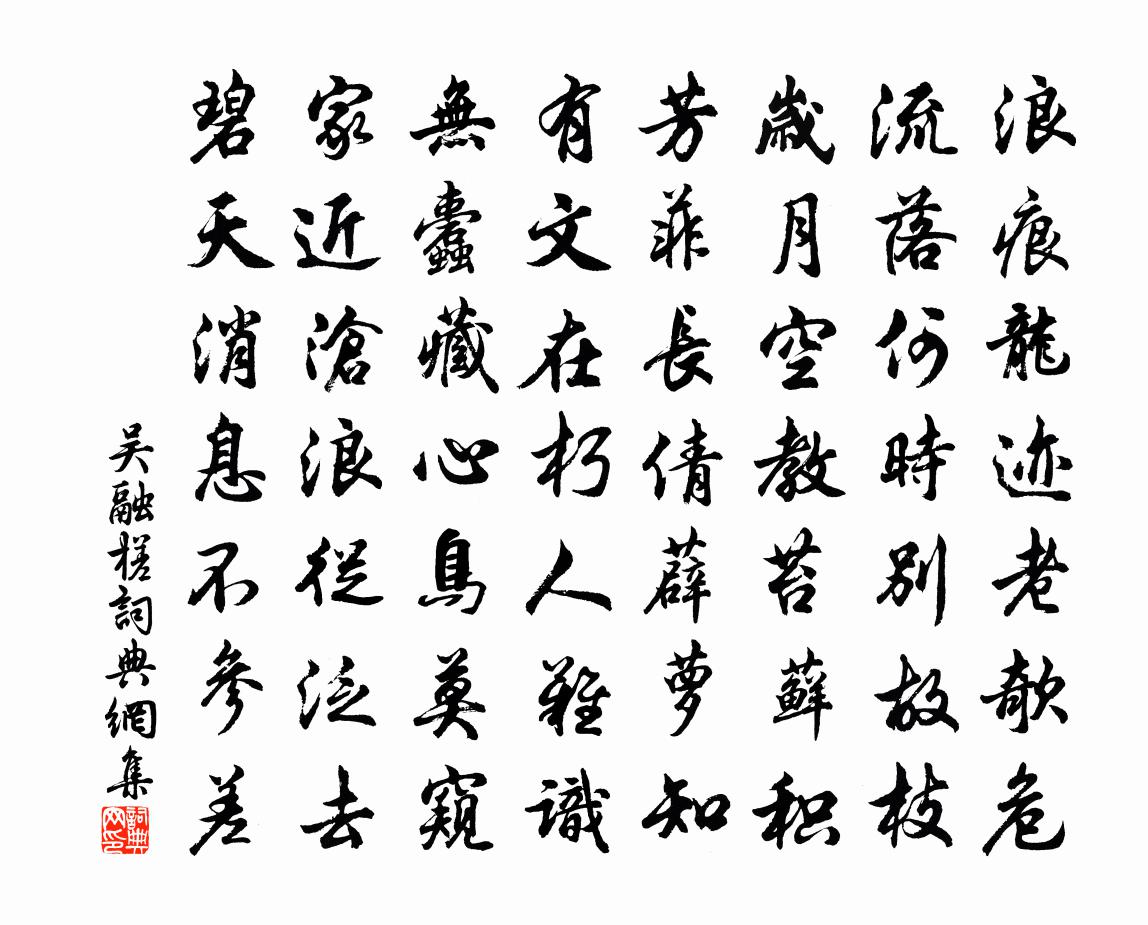 浪痕龍迹老欹危
流落何時別故枝
歲月空教苔蘚积
芳菲長倩薜萝知
有文在朽人難識
無蠹藏心鳥莫窺
家近滄浪從泛去
碧天消息不參差
吴融槎詞典網集
詞典网印